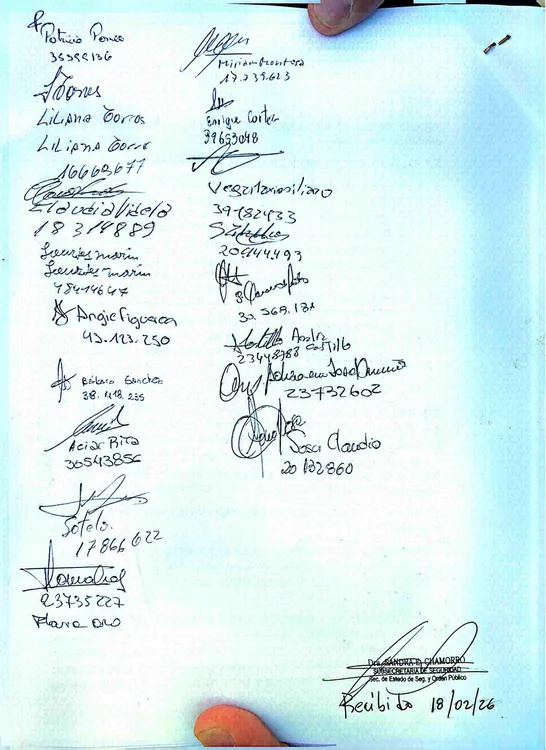 Patricia Ponce
35599136
Liliana Torres
Liliana Torres
16669677
Claudia Videla
18314889
Lourdes marin
Lourdes marin
Angie Figueroa
43.123.250
Barbara Sanchez
38.418.235
Aciar Rita
30543856
Sotelo.
17866622
23735227
Flavia Oro
Miriam Montoya
17.239.623
Enrique Cortez
39653048
Vega Maximiliano
39182433
20444493
30.569.181
Andra Castillo
23448788
23732602
Sosa Claudio
20132860
Dra. SANDRA E. CHAMORRO
SUBSECRETARIA DE SEGURIDAD
Sec. de Estado de Seg. y Orden Público
Recibido 18/02/26